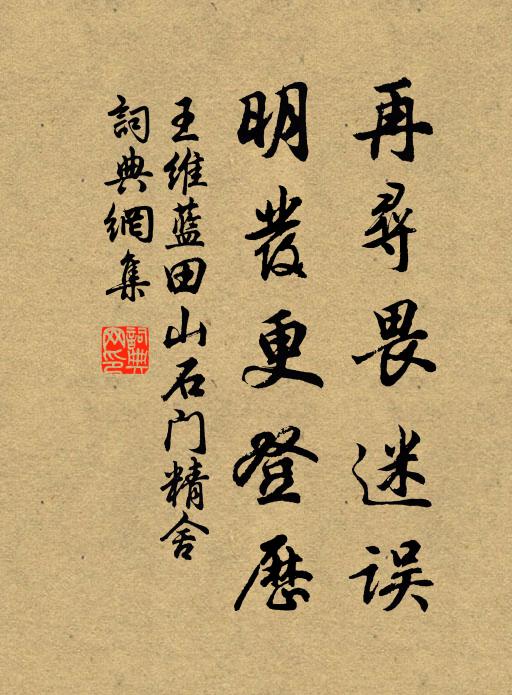 再尋畏迷误
明發更登歷
王维蓝田山石门精舍
詞典網集
詞典网印